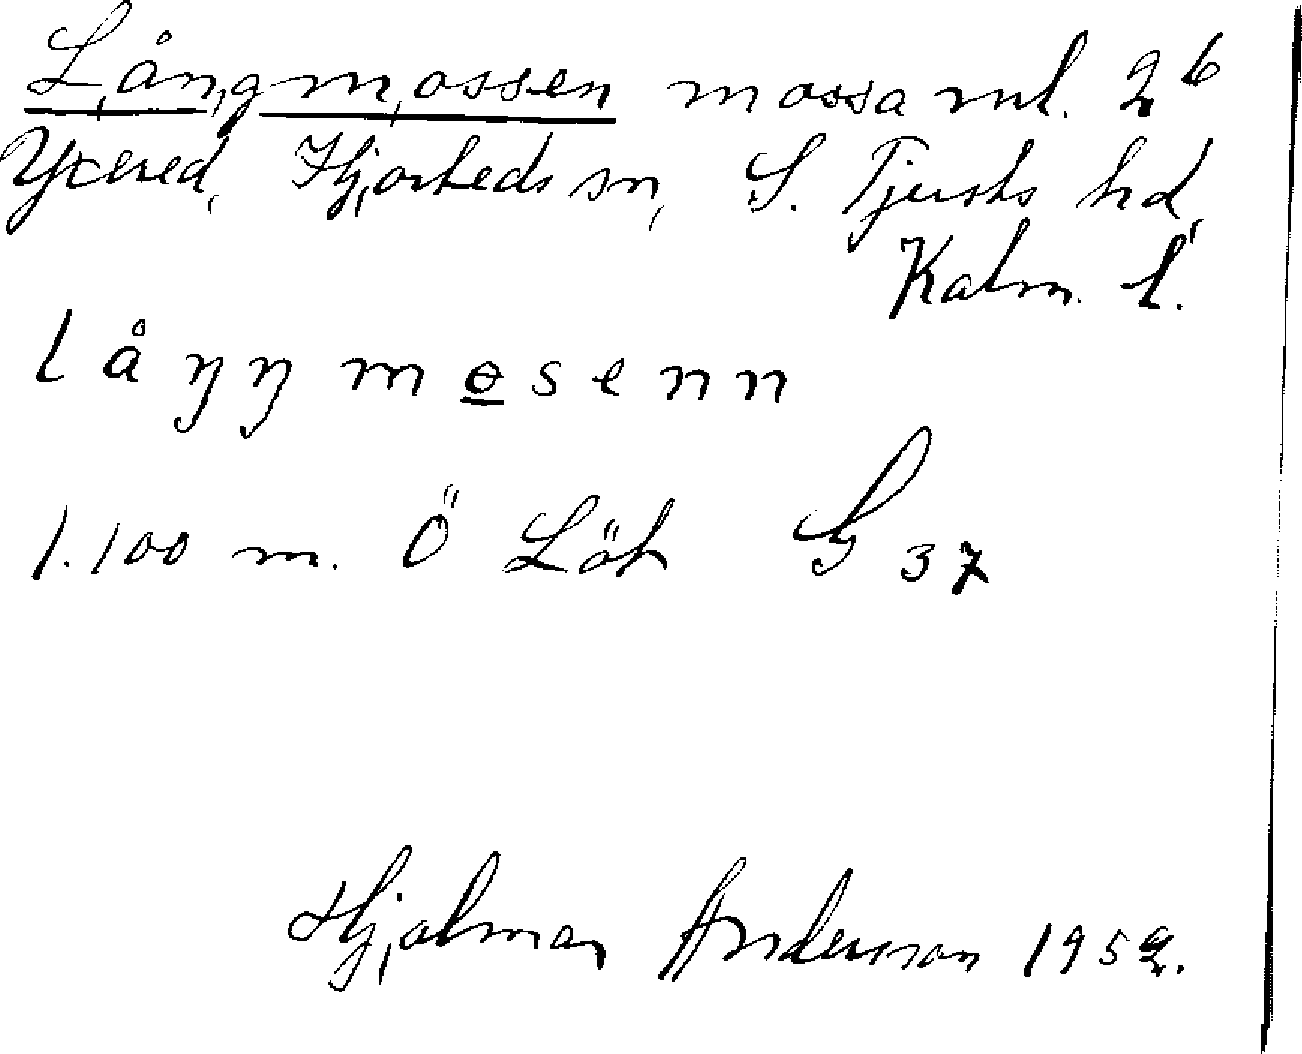 Långmossen mossa ml. 2⁶
Yxered, Hjorteds sn, S. Tjusts hd,
Kalm. l.
l å ŋ ŋ m ɵ s e n n
1.100 m. Ö Löh G 37
Hjalmar Andersson 1952.